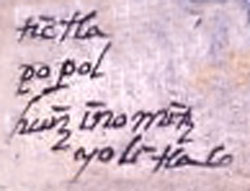 tictla
popol
huiz inomitz
yolitlaco